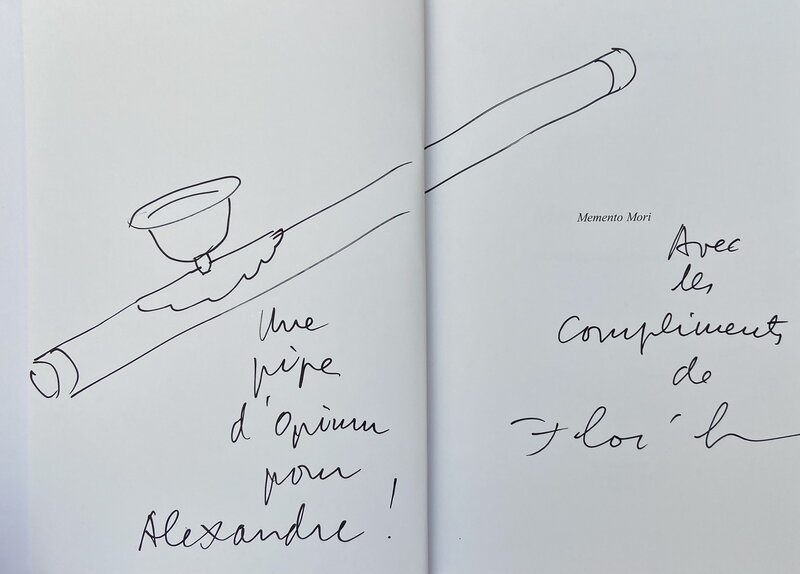 Une
pipe
d'Opium
pour
Alexandre !
Memento Mori
Avec
les
Compliments
de